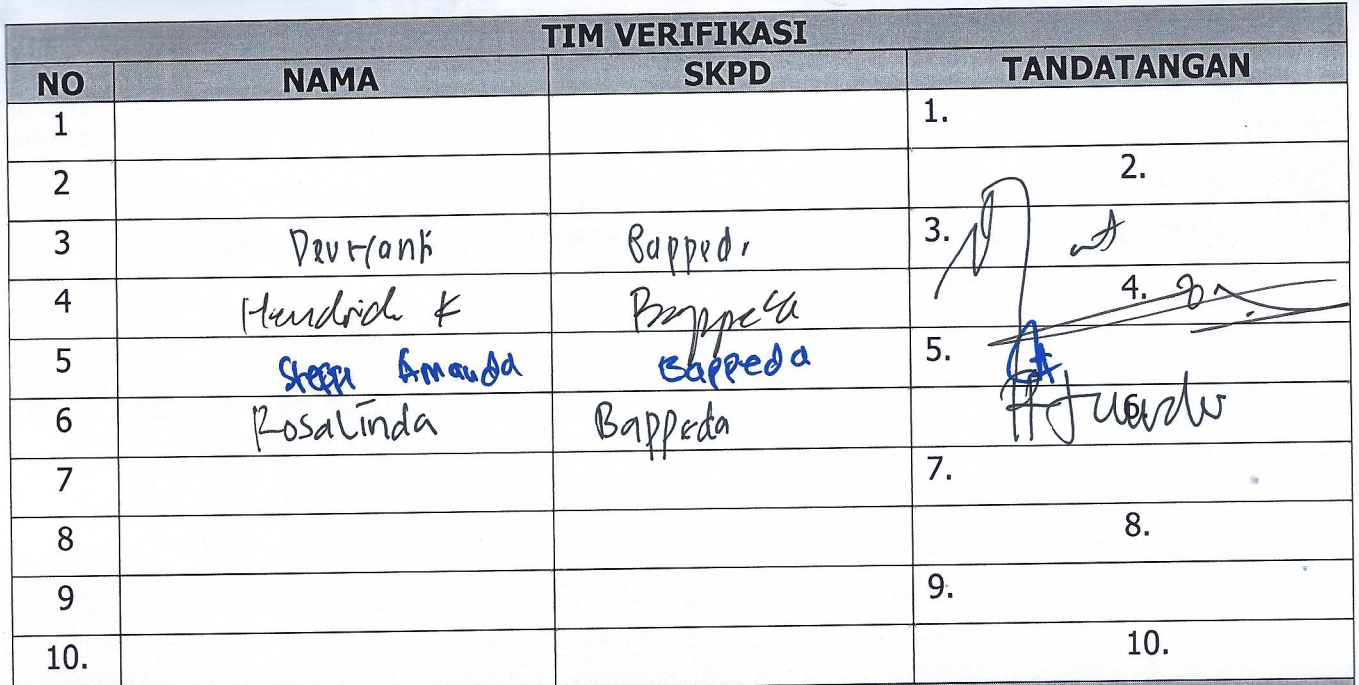 TIM VERIFIKASI
NO NAMA SKPD TANDATANGAN
1 1.
2 2.
3 Bapped 3.
4 Hendrich K Bappeda 4.
5 Steppi Amanda Bappeda 5.
6 Rosalinda Bappeda 6.
7 7.
8 8.
9 9.
10. 10.